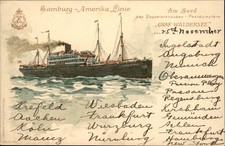 Hamburg-Amerika Linie
Am Bord
des Doppelschrauben-Postdampfers
"GRAF WALDERSEE"
25th November
Ingolstadt
Augsburg
Munich
Oberammergau
Passau
Regensburg
Frankfurt
Hamburg
New York
Crefeld
Aachen
Köln
Mainz
Wiesbaden
Frankfurt
Würzburg
Nürnberg